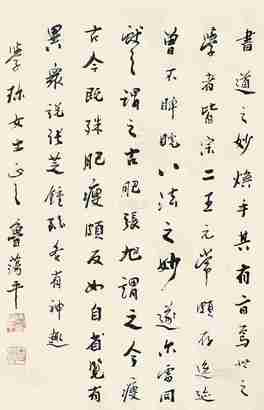 書道之妙煥乎其有旨焉世之
學者皆宗二王元常頗存逸迹
曾不睥睨八法之妙遂尔雷同
獻之謂之古肥張旭謂之今瘦
古今既殊肥瘦頗反如自省覽有
異眾說張芝鍾繇各有神趣
學珎女士正之 魯蕩平